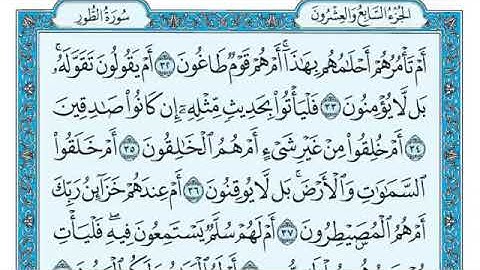 سُورَةُ الطُّورِ
الجُزْءُ السَّابِعُ وَالعِشْرُونَ
أَمْ تَأْمُرُهُمْ أَحْلَٰمُهُم بِهَٰذَآ ۚ أَمْ هُمْ قَوْمٌ طَاغُونَ ٣٢ أَمْ يَقُولُونَ تَقَوَّلَهُۥ ۚ
بَل لَّا يُؤْمِنُونَ ٣٣ فَلْيَأْتُوا۟ بِحَدِيثٍ مِّثْلِهِۦٓ إِن كَانُوا۟ صَٰدِقِينَ
٣٤ أَمْ خُلِقُوا۟ مِنْ غَيْرِ شَىْءٍ أَمْ هُمُ ٱلْخَٰلِقُونَ ٣٥ أَمْ خَلَقُوا۟
ٱلسَّمَٰوَٰتِ وَٱلْأَرْضَ ۚ بَل لَّا يُوقِنُونَ ٣٦ أَمْ عِندَهُمْ خَزَآئِنُ رَبِّكَ
أَمْ هُمُ ٱلْمُصَۣيْطِرُونَ ٣٧ أَمْ لَهُمْ سُلَّمٌ يَسْتَمِعُونَ فِيهِ ۖ فَلْيَأْتِ